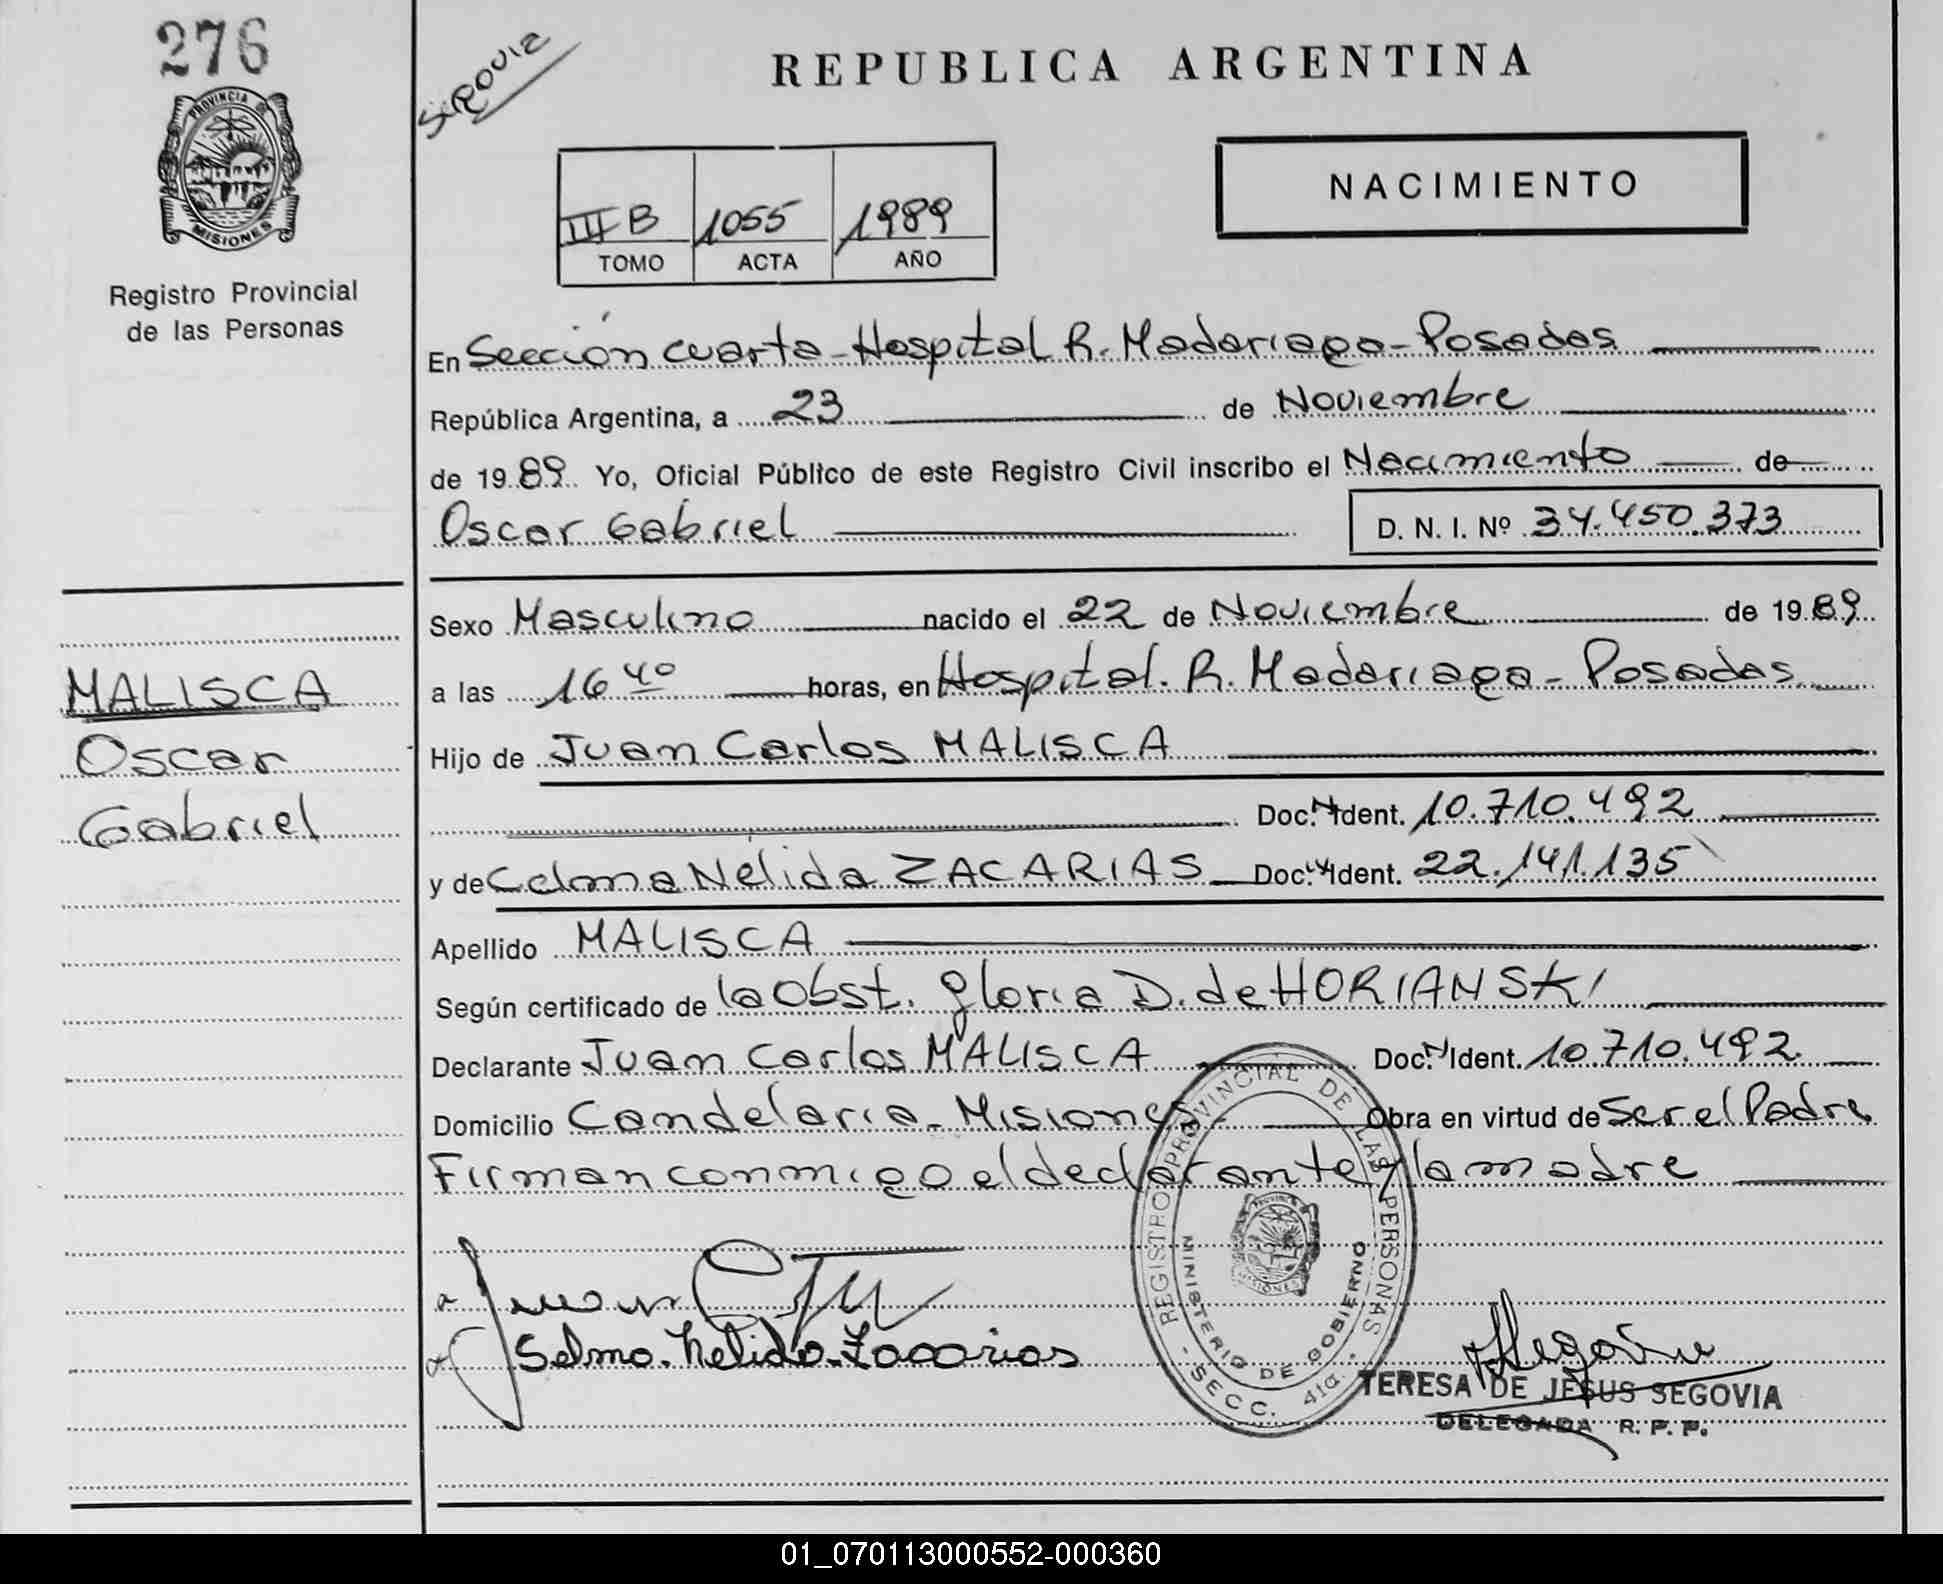 276
SROVIZ
REPUBLICA ARGENTINA
PROVINCIA DE
MISIONES
Registro Provincial
de las Personas
III B 1055 1989
TOMO ACTA AÑO
NACIMIENTO
En Sección cuarta - Hospital R. Madariaga - Posadas
República Argentina, a 23 de Noviembre
de 19 89 Yo, Oficial Público de este Registro Civil inscribo el Nacimiento de
Oscar Gabriel D. N. I. Nº 34.450.373
Sexo Masculino nacido el 22 de Noviembre de 19 89
a las 16 40 horas, en Hospital. R. Madariaga - Posadas
Hijo de Juan Carlos MALISCA
Doc. N Ident. 10.710.492
y de Celma Nélida ZACARIAS Doc. N Ident. 22.141.135
Apellido MALISCA
Según certificado de la Obst. Gloria D. de HORIANSKI
Declarante Juan Carlos MALISCA Doc. N Ident. 10.710.492
Domicilio Candelaria - Misiones Obra en virtud de Ser el Padre
Firman conmigo el declarante y la madre
MALISCA
Oscar
Gabriel
Juan
Selma. Nelida. Zacarias
REGISTRO PROVINCIAL DE LAS PERSONAS
MINISTERIO DE GOBIERNO
SECC. 41a.
Segovia
TERESA DE JESUS SEGOVIA
DELEGADA R. P. P.
01_070113000552-000360